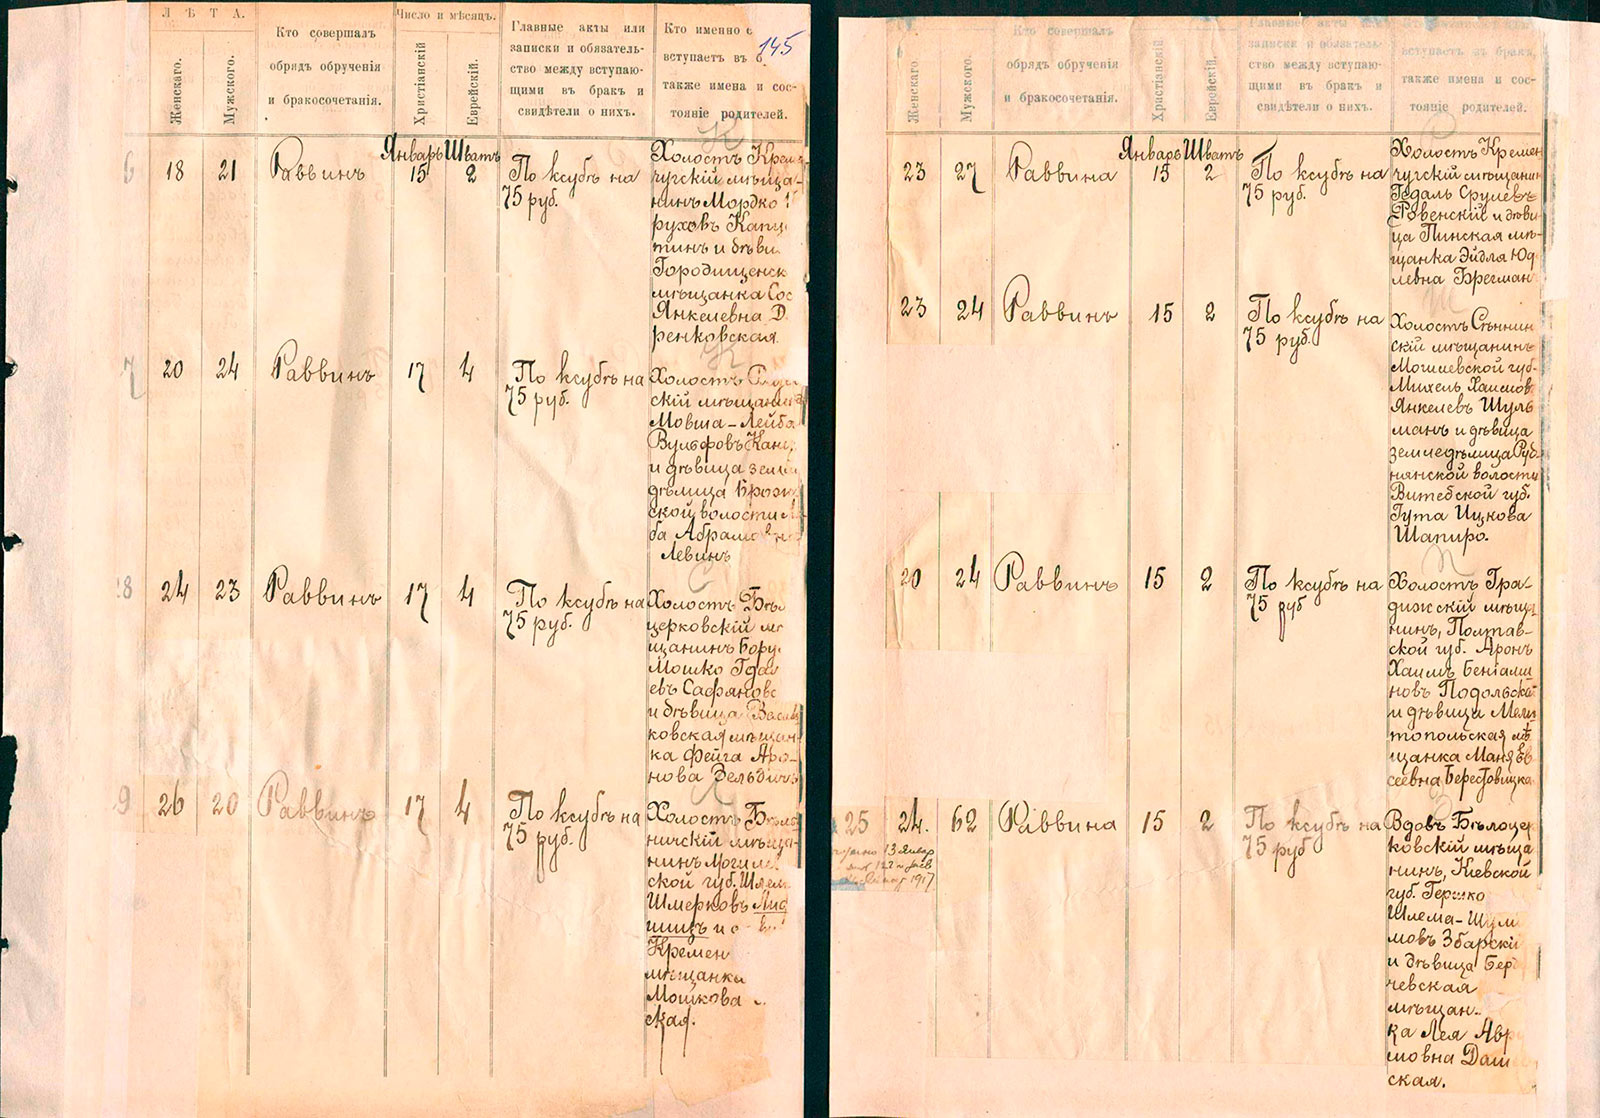 145
Л Ѣ Т А.
Женскаго.
Мужского.
Кто совершалъ
обрядъ обрученія
и бракосочетанія.
Число и мѣсяцъ.
Христіанскій
Еврейскій.
Главные акты или
записки и обязатель-
ство между вступаю-
щими въ бракъ и
свидѣтели о нихъ.
Кто именно
вступаетъ въ
также имена и сос-
тояніе родителей.
6 18 21 Раввинъ
Январь Шватъ
15 2
По ксубѣ на
75 руб.
Холостъ Кремен
чугскій мѣща-
нинъ Мордко
руховъ Капу
тинъ и дѣви
Городищенск
мѣщанка Сос
Янкелевна Д
ренковская.
7 20 24 Раввинъ 17 4
По ксубѣ на
75 руб.
Холостъ
скій мѣщанин
Мовша-Лейба
Вульфовъ
и дѣвица земле
дѣлица
ской волости
ба Абрамовна
Левинъ
8 24 23 Раввинъ 17 4
По ксубѣ на
75 руб.
Холостъ Бѣл
церковскій мѣ
щанинъ Бору
Мошко Гдал
евъ Сафяновс
и дѣвица Василь
ковская мѣщан-
ка Фейга Аро-
нова Зельдичъ
9 26 20 Раввинъ 17 4
По ксубѣ на
75 руб.
Холостъ Бѣлы
ничскій мѣща-
нинъ Могилев
ской губ. Шлем
Шмерковъ Лиф
шицъ и
Кремен
мѣщанка
Мошкова
ская.
Женскаго
Мужского.
Кто совершалъ
обрядъ обрученія
и бракосочетанія.
Христіанскій
Еврейскій.
Главные акты или
записки и обязатель-
ство между вступаю-
щими въ бракъ и
свидѣтели о нихъ.
вступаетъ въ бракъ,
также имена и сос-
тояніе родителей.
23 27 Раввина
Январь Шватъ
15 2
По ксубѣ на
75 руб.
Холостъ Кремен
чугскій мѣщанин
Гедаль Срулевъ
Ровенскій и дѣви
ца Пинская мѣ-
щанка Эйдля Юд
левна Брегман
23 24 Раввинъ 15 2
По ксубѣ на
75 руб.
Холостъ Сѣннин
скій мѣщанинъ
Могилевской губ.
Михель Хаимов
Янкелевъ Шуль
манъ и дѣвица
земледѣлица Руд
нянской волости
Витебской губ.
Гута Ицкова
Шапиро.
20 24 Раввинъ 15 2
По ксубѣ на
75 руб
Холостъ Гра-
дижскій мѣща
нинъ, Полтав-
ской губ. Аронъ
Хаимъ Беніами
новъ Подольскій
и дѣвица Мели
топольская мѣ
щанка Маня Ев
сеевна Берестовицкая
25 24. 62 Раввина 15 2
13 Январ
1917
По ксубѣ на
75 руб
Вдовъ Бѣлоцер
ковскій мѣща
нинъ, Кіевской
губ. Гершко
Шлема-Шули
мовъ Збарскі
и дѣвица Бер
чевская
мѣщан-
ка Лея Авр
мовна Даш
ская.